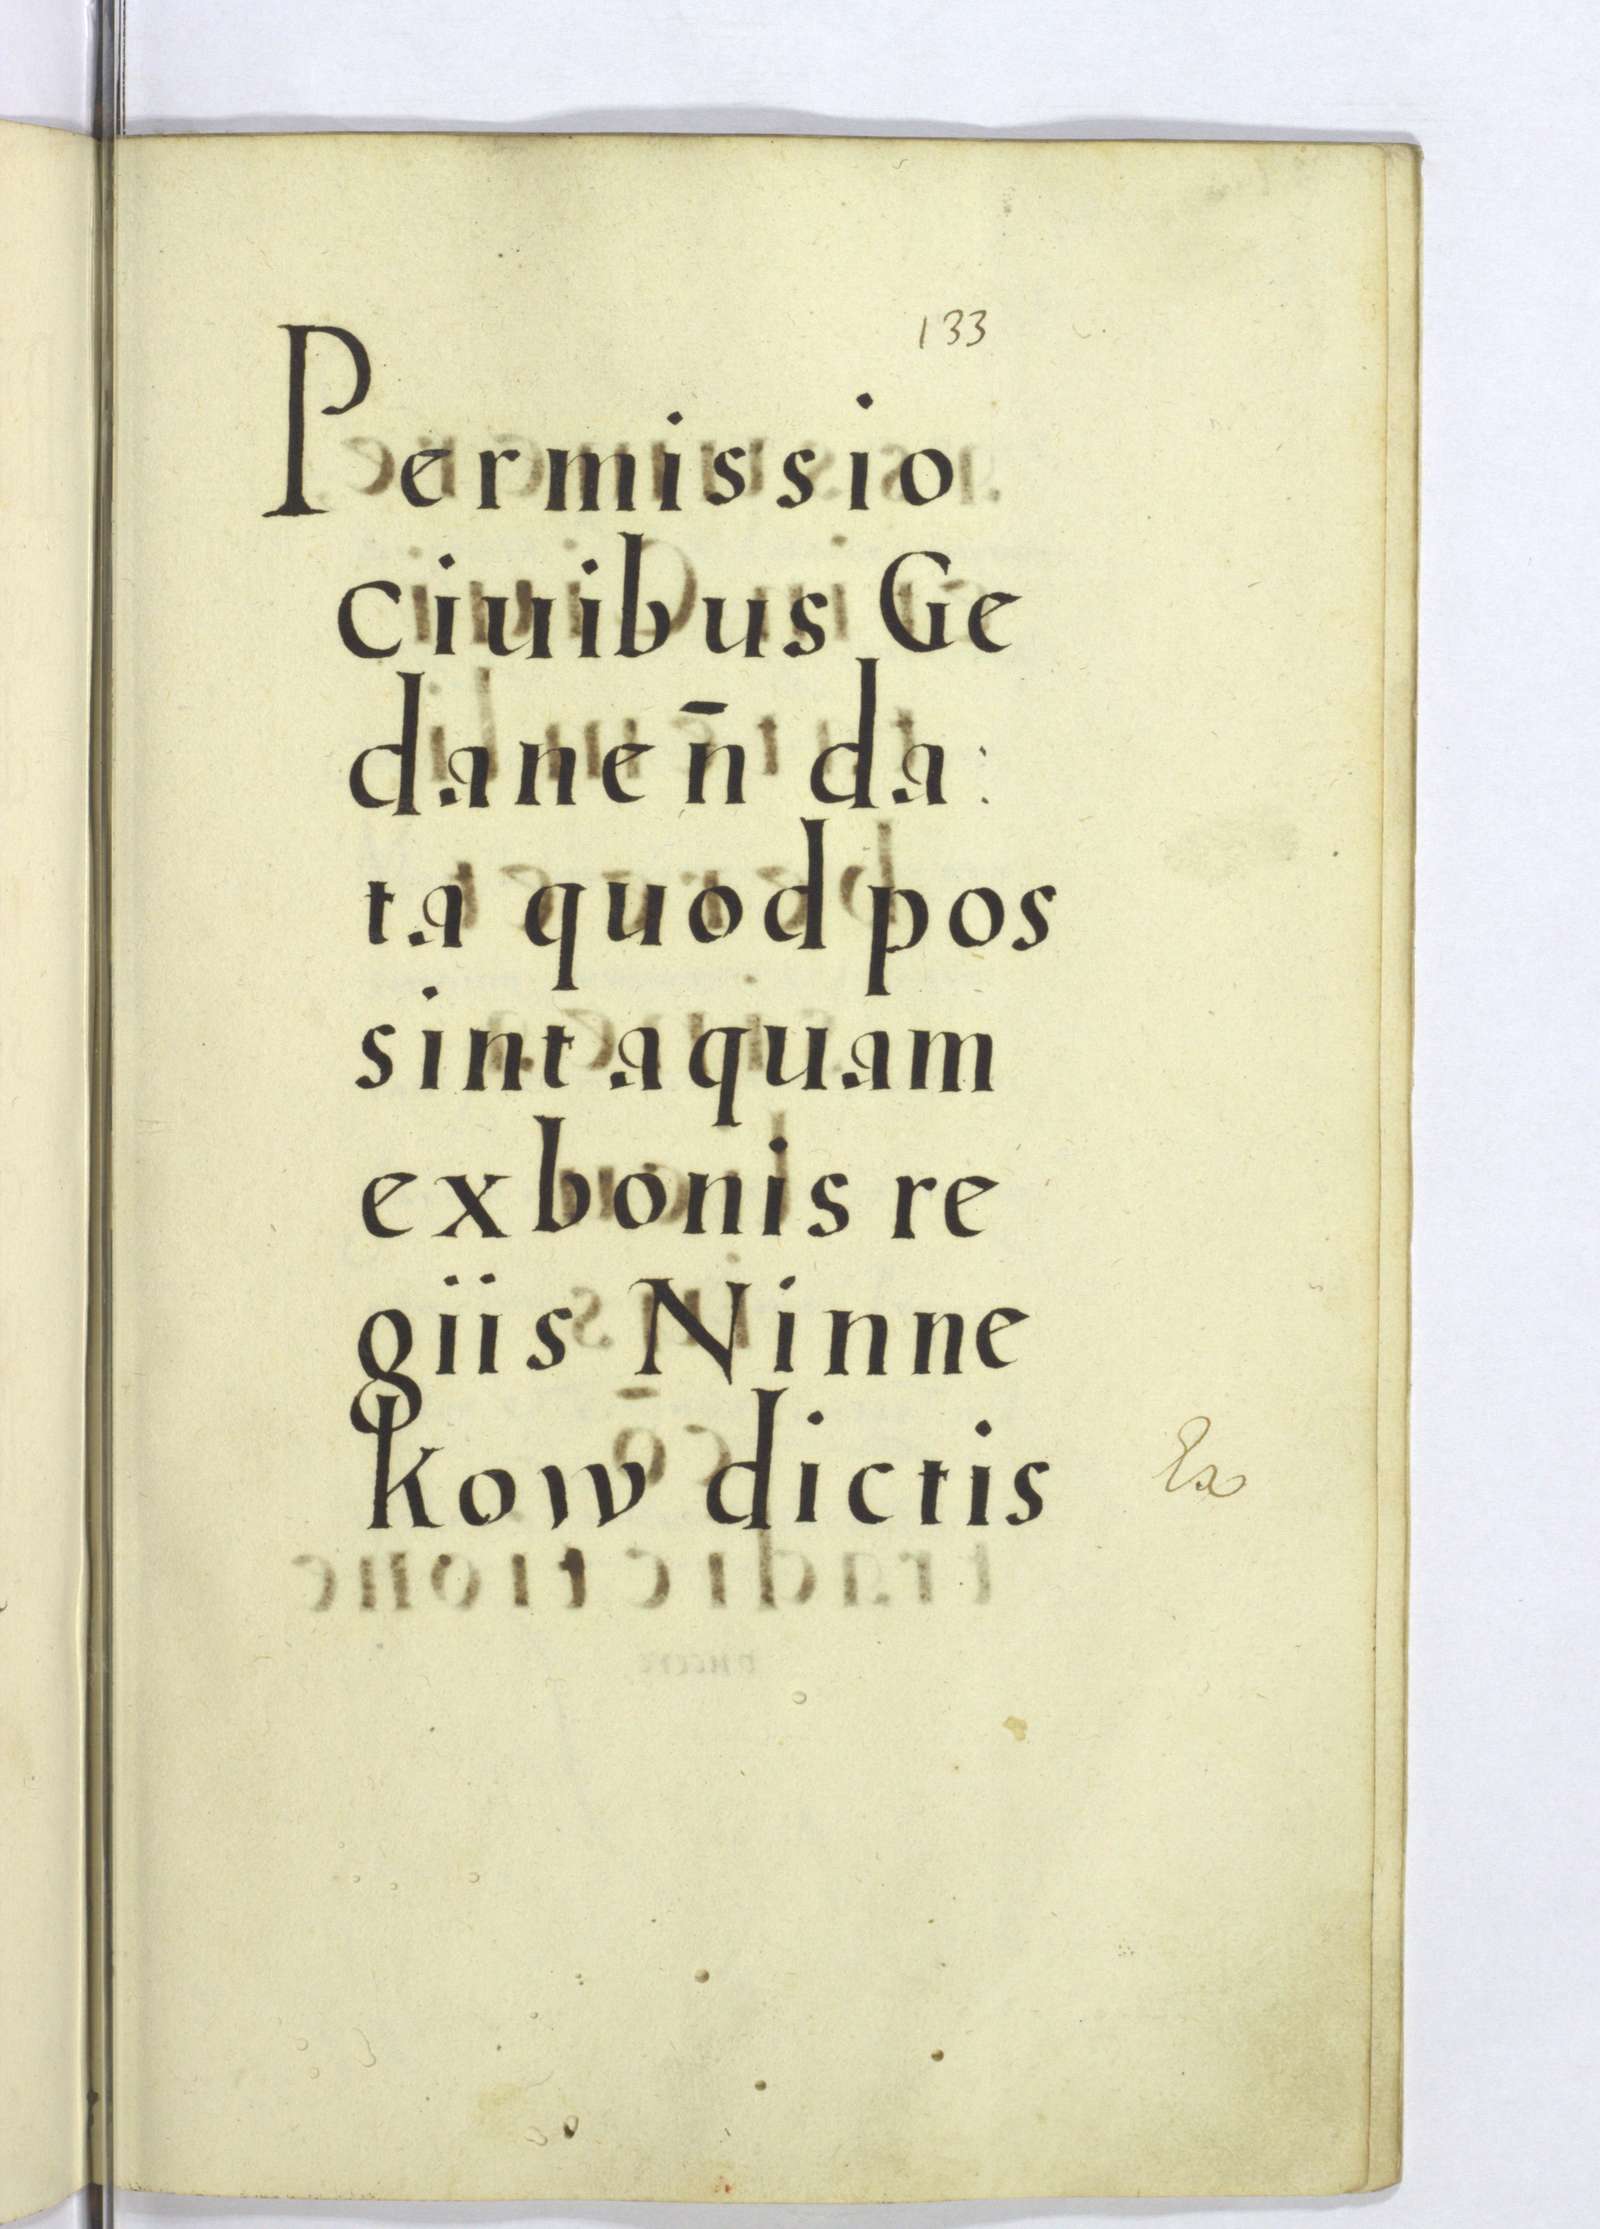 133
Permissio
ciuibus Ge
daneñ da:
ta quod pos
sint aquam
ex bonis re
giis Ninne
kow dictis